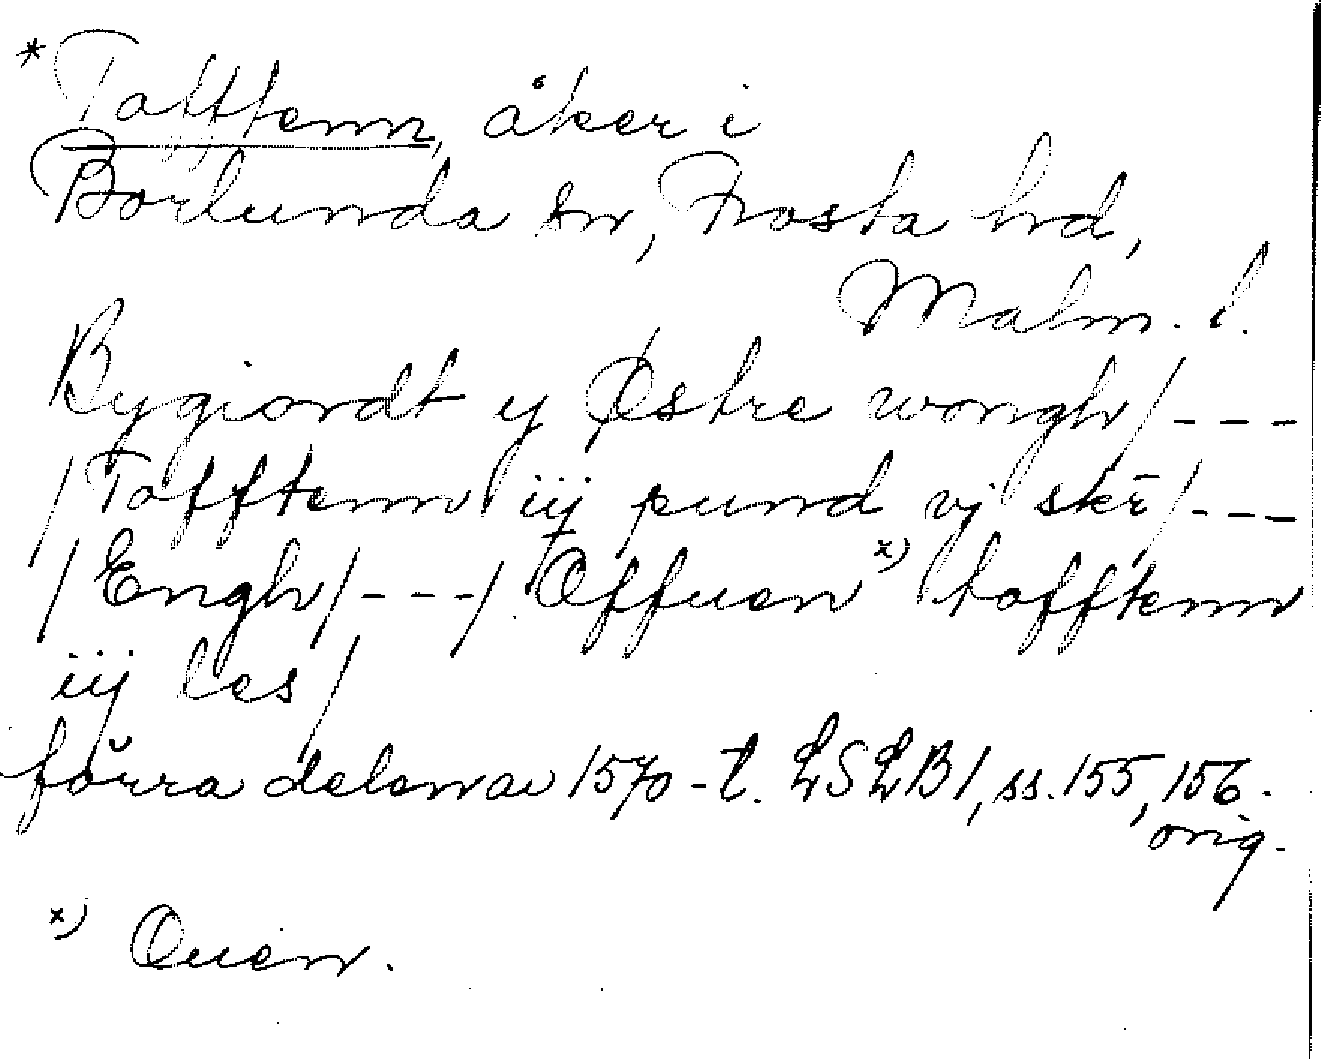 *Tofftenn, åker i
Borlunda sn, Frosta hrd,
Malm. l.
Bygiordt y Østre wongh/---
/Tofftenn iij pund vj skē/---
/Engh/---/ Offuen x) tofftenn
iij les/
förra delen av 1570-t. LSLB1, ss. 155, 156.
orig.
x) Ouen.